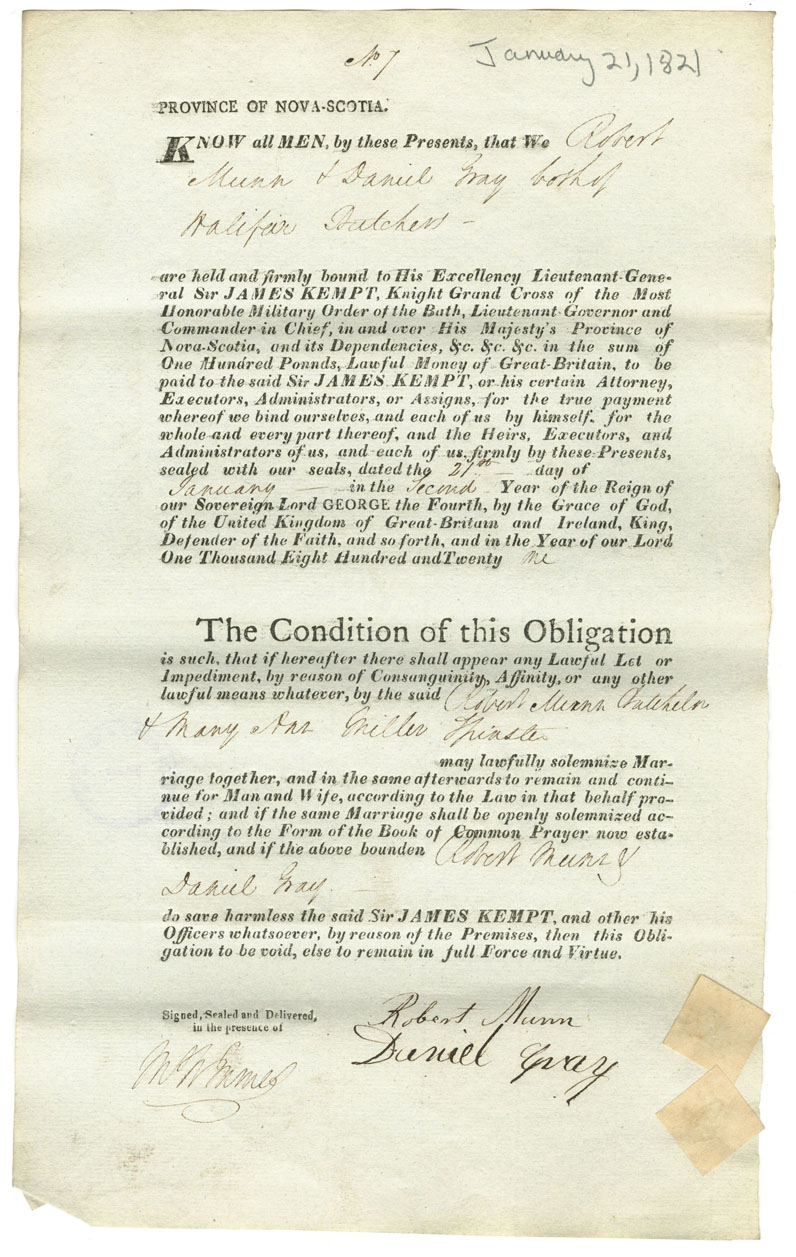 No 7
January 21, 1821
PROVINCE OF NOVA-SCOTIA.
KNOW all MEN, by these Presents, that We Robert
Munn & Daniel Gray both of
Halifax Butchers —
are held and firmly bound to His Excellency Lieutenant-Gene-
ral Sir JAMES KEMPT, Knight Grand Cross of the Most
Honorable Military Order of the Bath, Lieutenant-Governor and
Commander in Chief, in and over His Majesty's Province of
Nova-Scotia, and its Dependencies, &c. &c. &c. in the sum of
One Hundred Ponnds, Lawful Money of Great-Britain, to be
paid to the said Sir JAMES KEMPT, or his certain Attorney,
Executors, Administrators, or Assigns, for the true payment
whereof we bind ourselves, and each of us by himself, for the
whole and every part thereof, and the Heirs, Executors, and
Administrators of us, and each of us, firmly by these Presents,
sealed with our seals, dated the 21st — day of
January — in the Second Year of the Reign of
our Sovereign Lord GEORGE the Fourth, by the Grace of God,
of the United Kingdom of Great-Britain and Ireland, King,
Defender of the Faith, and so forth, and in the Year of our Lord
One Thousand Eight Hundred and Twenty one
The Condition of this Obligation
is such, that if hereafter there shall appear any Lawful Let or
Impediment, by reason of Consanguinity, Affinity, or any other
lawful means whatever, by the said Robert Munn Batchelor
& Mary Ann Miller Spinster
may lawfully solemnize Mar-
riage together, and in the same afterwards to remain and conti-
nue for Man and Wife, according to the Law in that behalf pro-
vided; and if the same Marriage shall be openly solemnized ac-
cording to the Form of the Book of Common Prayer now esta-
blished, and if the above bounden Robert Munn &
Daniel Gray —
do save harmless the said Sir JAMES KEMPT, and other his
Officers whatsoever, by reason of the Premises, then this Obli-
gation to be void, else to remain in full Force and Virtue.
Signed, Sealed and Delivered,
in the presence of
Robert Munn
Daniel Gray